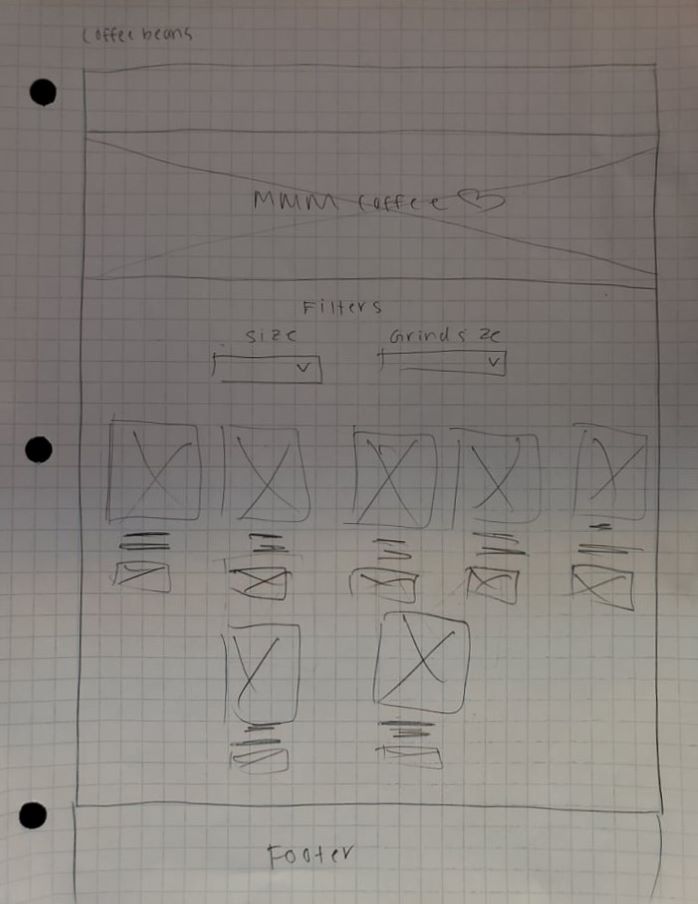 Coffee beans
MMM Coffee ♡
Filters
Size Grind size
Footer